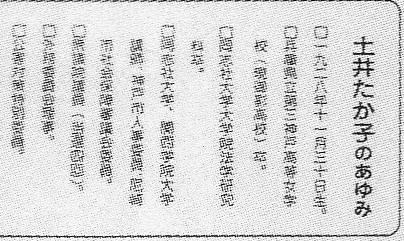 土井たか子のあゆみ
□一九二八年十一月三十日生。
□兵庫県立第三神戸高等女学
校（現御影高校）卒。
□同志社大学大学院法学研究
科卒。
□同志社大学、関西学院大学
講師、神戸市人事委員、尼崎
市社会保障審議会委員。
□衆議院議員（当選四回）。
□外務委員会理事。
□公害対策特別委員。